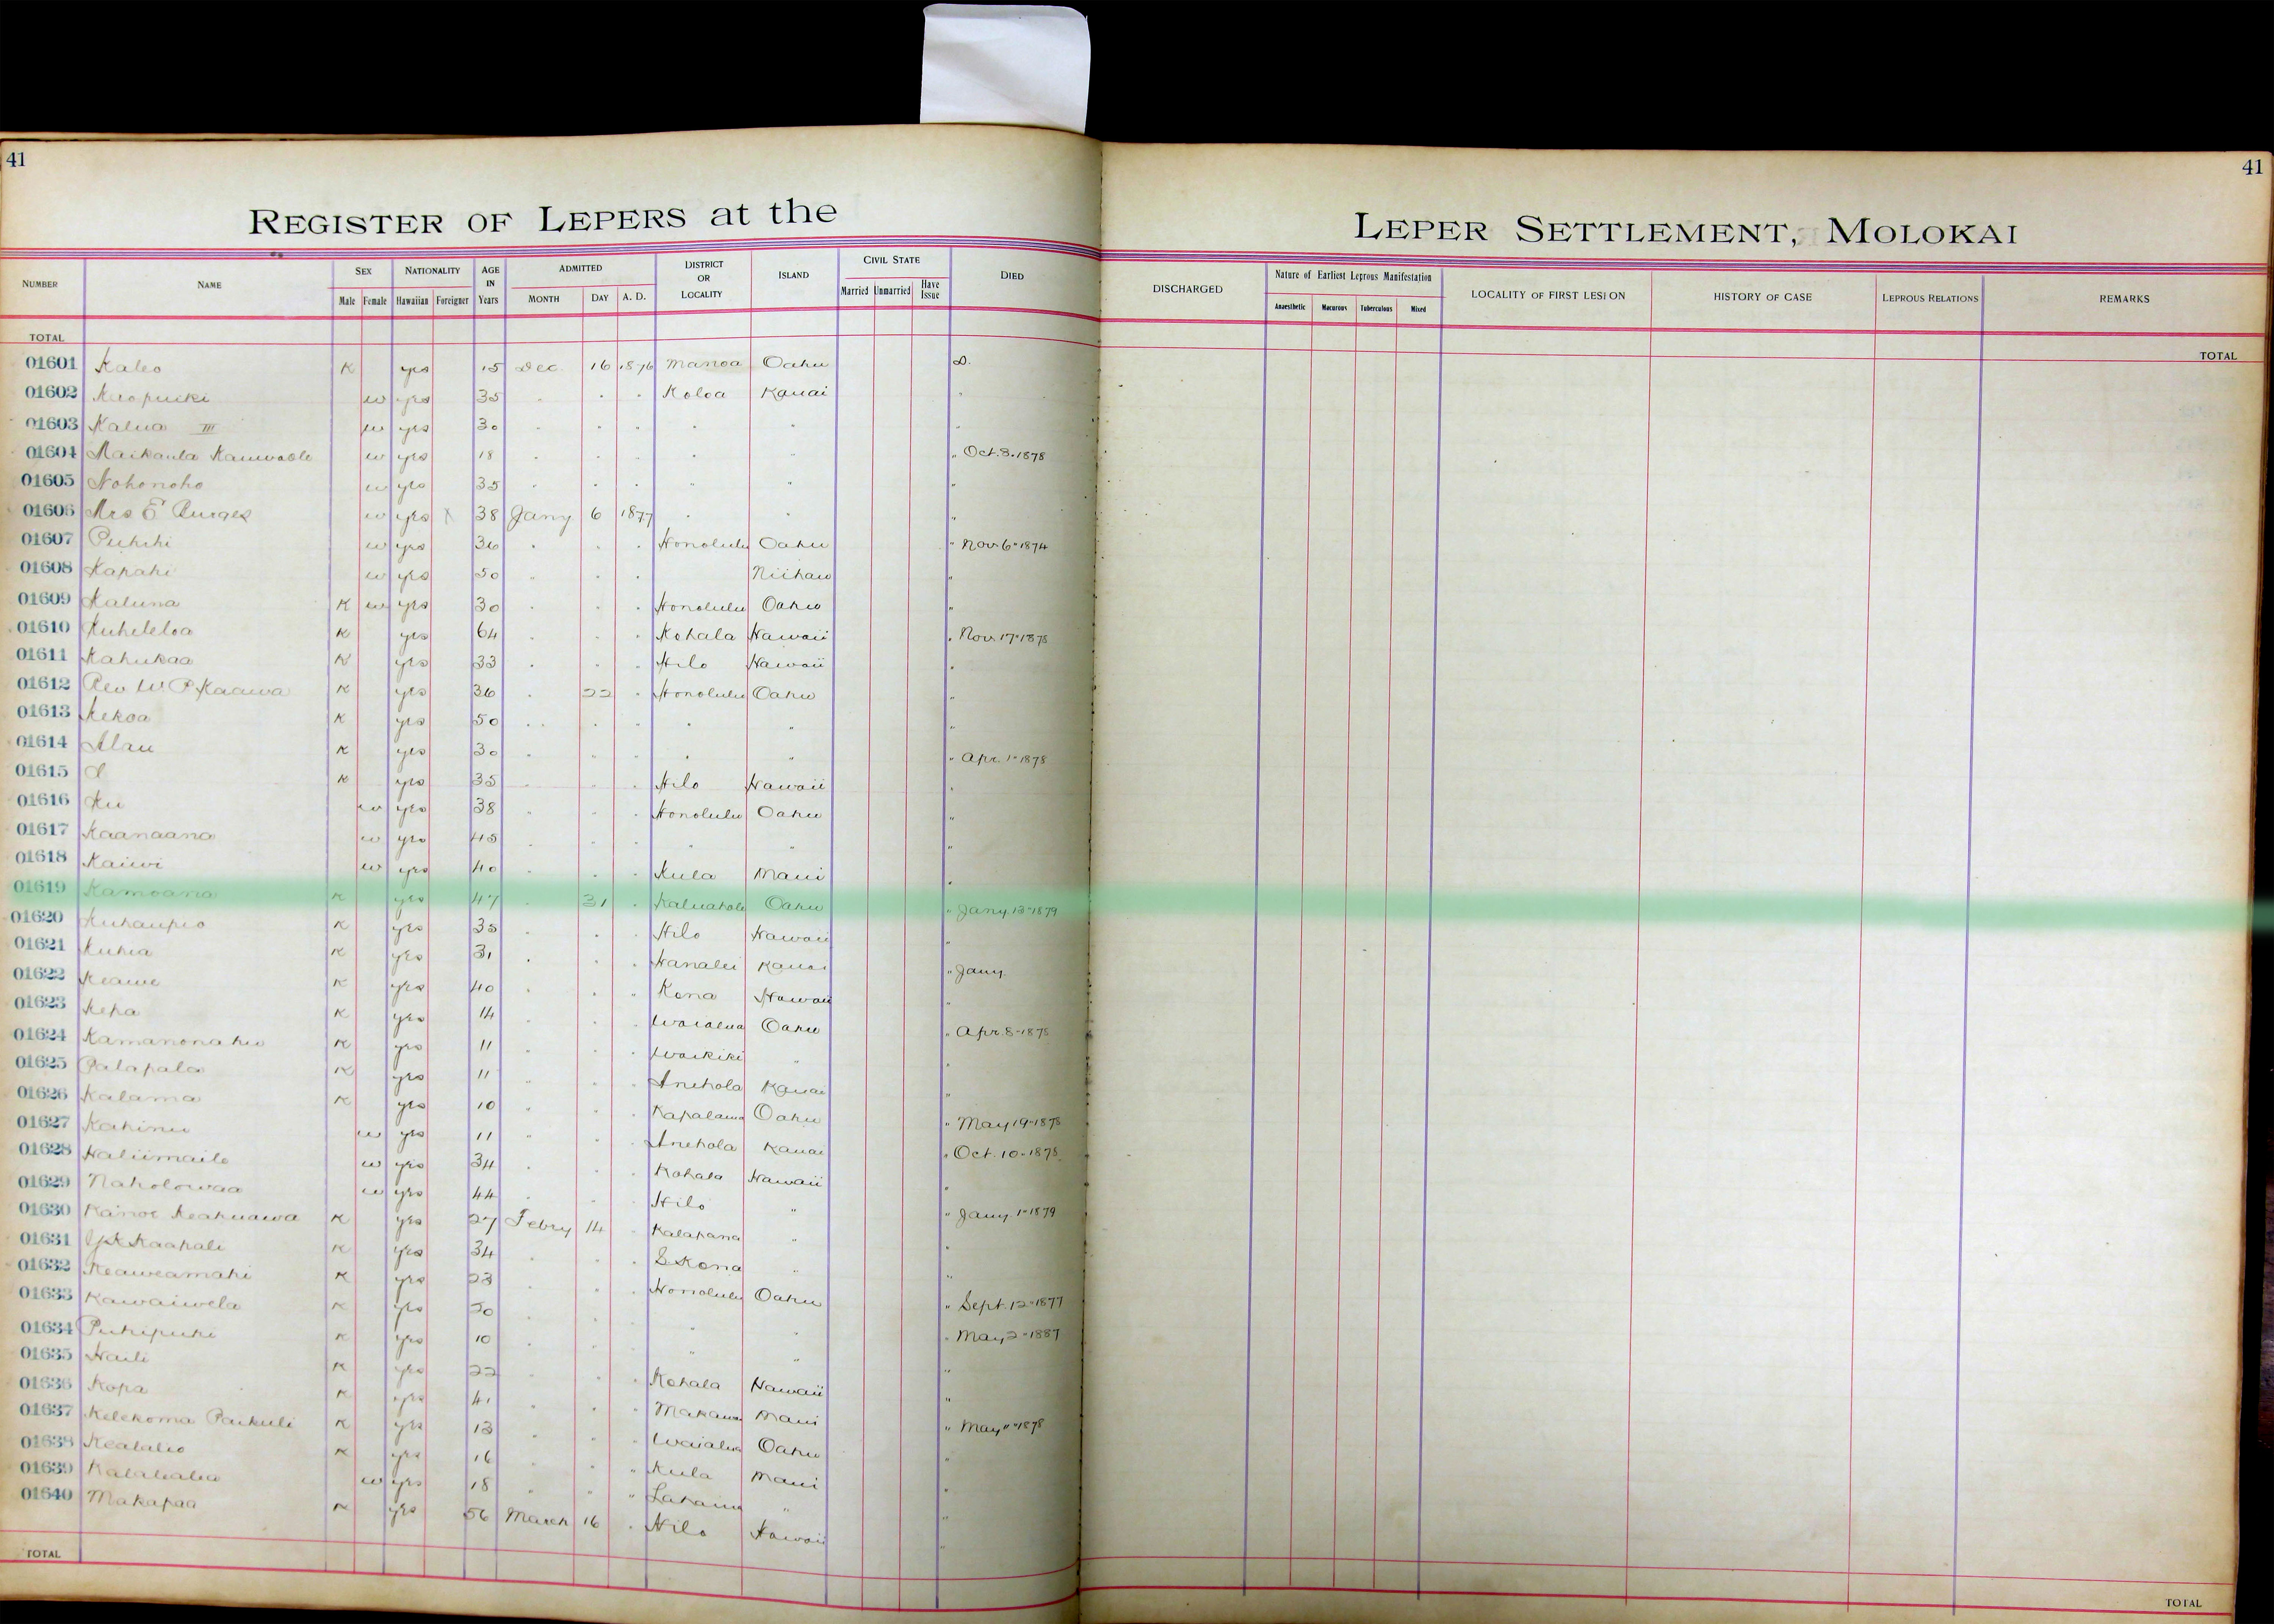 41
41
REGISTER OF LEPERS at the
LEPER SETTLEMENT, MOLOKAI
NUMBER NAME SEX Male Female NATIONALITY Hawaiian Foreigner AGE IN Years ADMITTED MONTH DAY A. D. DISTRICT OR LOCALITY ISLAND CIVIL STATE Married Unmarried Have Issue DIED DISCHARGED Nature of Earliest Leprous Manifestation Anaesthetic Macurous Tuberculous Mixed LOCALITY OF FIRST LESION HISTORY OF CASE LEPROUS RELATIONS REMARKS
TOTAL TOTAL
01601 Kaleo K yes 15 Dec 16 1876 Manoa Oahu D.
01602 w yes 35 " " " Koloa Kauai "
01603 Kalua III w yes 30 " " " " " "
01604 w yes 18 " " " " " " Oct. 3. 1878
01605 Nohonoho w yes 35 " " " " " "
01606 Mrs E Burges w yes X 38 Jany 6 1877 " " "
01607 Puhihi w yes 36 " " " Honolulu Oahu " Nov 6 - 1874
01608 Kapahi w yes 50 " " " Niihau "
01609 Kaluna K w yes 30 " " " Honolulu Oahu "
01610 Kuheleloa K yes 64 " " " Kohala Hawaii " Nov. 17 - 1878
01611 Kahukaa K yes 33 " " " Hilo Hawaii "
01612 Rev W. P Kaawa K yes 36 " 22 " Honolulu Oahu "
01613 Kekoa K yes 50 " " " " " "
01614 Alau K yes 30 " " " " " " Apr. 1 - 1878
01615 K yes 35 " " " Hilo Hawaii "
01616 Ku w yes 38 " " " Honolulu Oahu "
01617 Kaanaana w yes 45 " " " " " "
01618 Kaiwi w yes 40 " " " Kula Maui "
01619 Kamoana K yes 47 " 31 " Oahu " Jany. 13 - 1879
01620 Kuhaupio K yes 35 " " " Hilo Hawaii "
01621 Kuhia K yes 31 " " " Hanalei Kauai " Jany.
01622 Keawe K yes 40 " " " Kona Hawaii "
01623 Kepa K yes 14 " " " Waialua Oahu " Apr. 8 - 1878
01624 Kamanonahu K yes 11 " " " Waikiki " "
01625 Palapala K yes 11 " " " Anehola Kauai "
01626 Kalama K yes 10 " " " Kapalama Oahu " May 19 - 1878
01627 Kahinu w yes 11 " " " Anehola Kauai " Oct. 10 - 1878
01628 Haliimaile w yes 34 " " " Kohala Hawaii "
01629 Naholowaa w yes 44 " " " Hilo " " Jany. 1 - 1879
01630 Kanoe Keakuawa K yes 27 Febry 14 " Kalapana " "
01631 Kaahale K yes 34 " " " S Kona " "
01632 Keaweamahi K yes 23 " " " Honolulu Oahu " Sept. 12 - 1877
01633 Kawaiwela K yes 20 " " " " " " May 2 - 1887
01634 Puhipuhi K yes 10 " " " " " "
01635 Haili K yes 22 " " " Kohala Hawaii "
01636 Kopa K yes 41 " " " Makawao Maui " May 11 - 1878
01637 Kelekoma Paikuli K yes 13 " " " Waialua Oahu "
01638 Kealaleo K yes 16 " " " Kula Maui "
01639 w yes 18 " " " Lahaina " "
01640 Makapaa K yes 56 March 16 " Hilo Hawaii "
TOTAL TOTAL